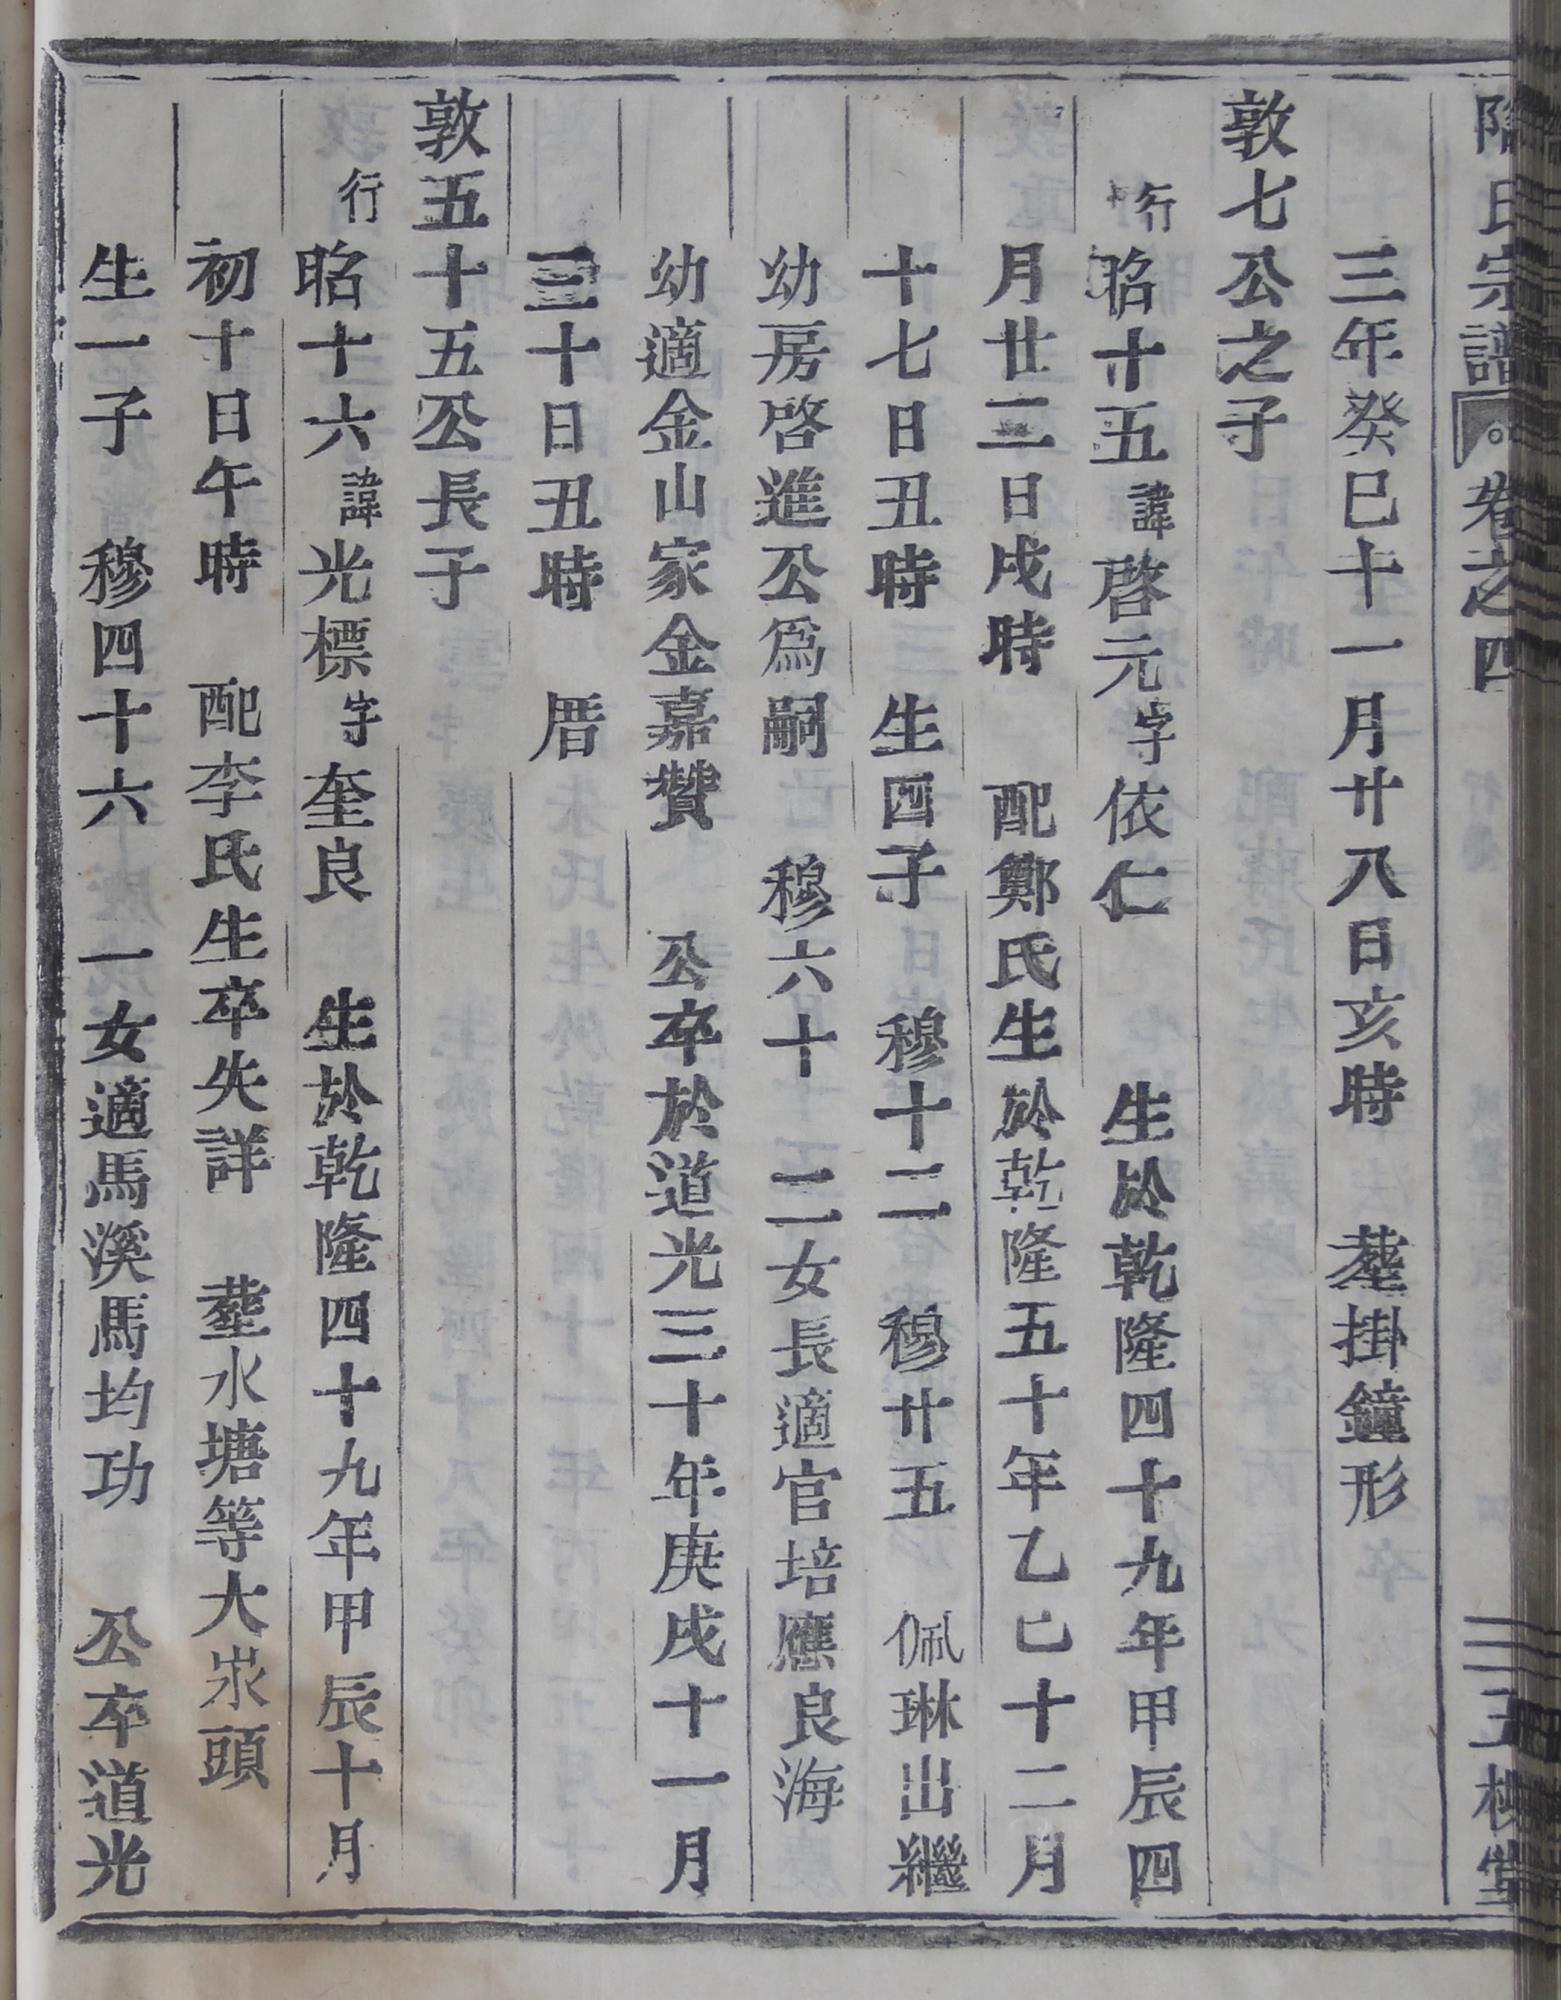 氏宗譜 卷之四
三年癸巳十一月廿八日亥時 塟掛鐘形
敦七公之子
行昭十五諱啓元字依仁 生於乾隆四十九年甲辰四
月廿三日戌時 配鄭氏生於乾隆五十年乙巳十二月
十七日丑時 生四子 穆十二 穆廿五 佩琳出繼
幼房啓進公爲嗣 穆六十 二女長適官培應良海
幼適金山家金嘉贊 公卒於道光三十年庚戌十一月
三十日丑時 厝
敦五十五公長子
行昭十六諱光標字奎良 生於乾隆四十九年甲辰十月
初十日午時 配李氏生卒失詳 塟水塘等大崇頭
生一子 穆四十六 一女適馬溪馬均功 公卒道光